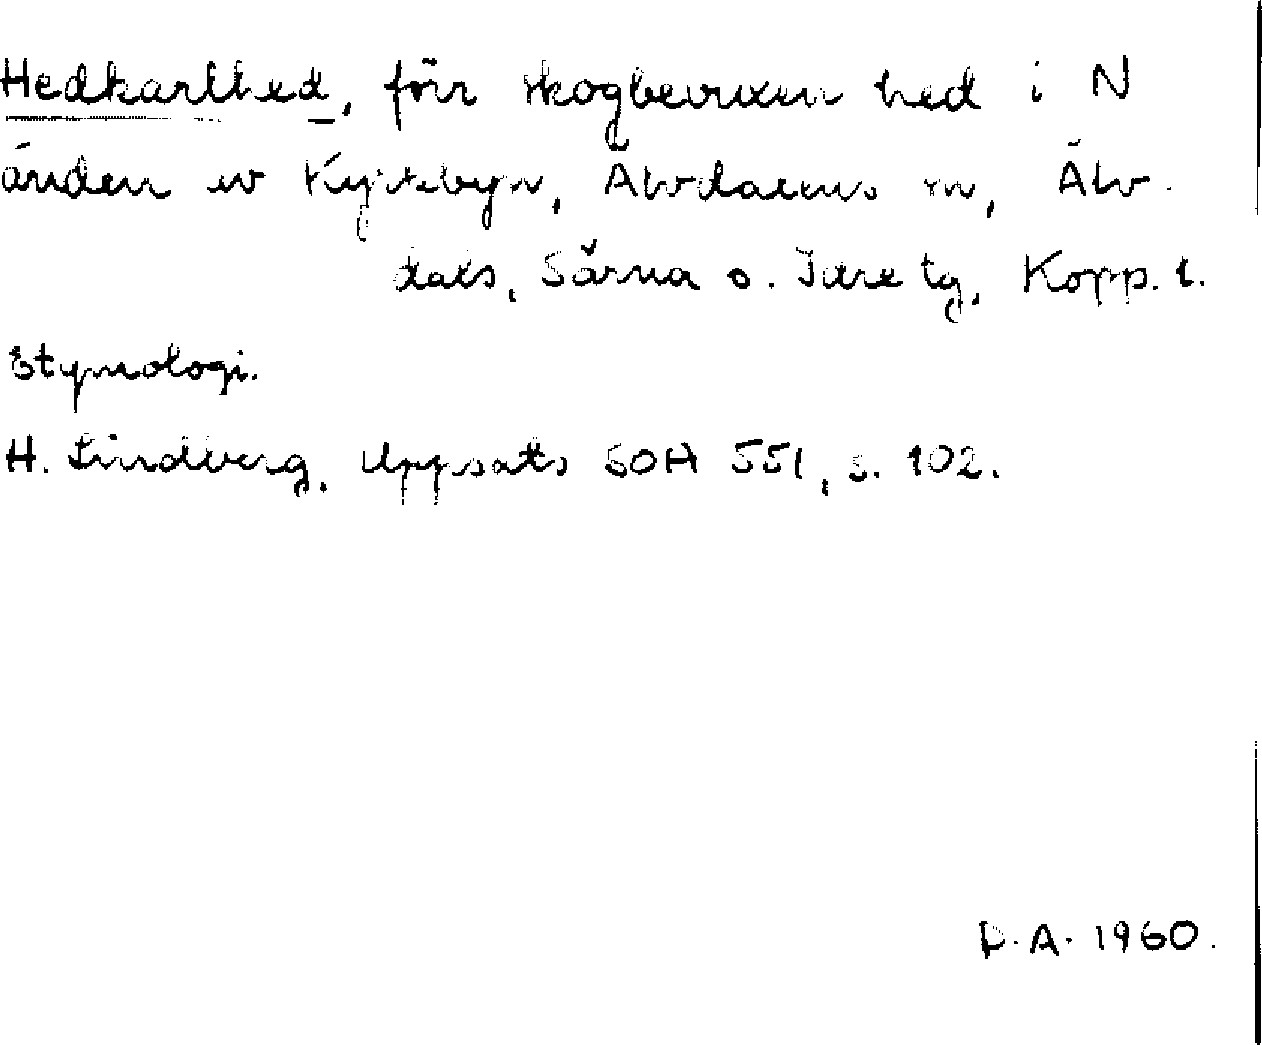 Hedkarlhed, förr skogbevuxen hed i N
änden av Kyrkbyn, Älvdalens sn, Älv-
dals, Särna o. Idre tg, Kopp. l.
Etymologi.
H. Lindberg, Uppsats SOH 551, s. 102.
D.A. 1960.